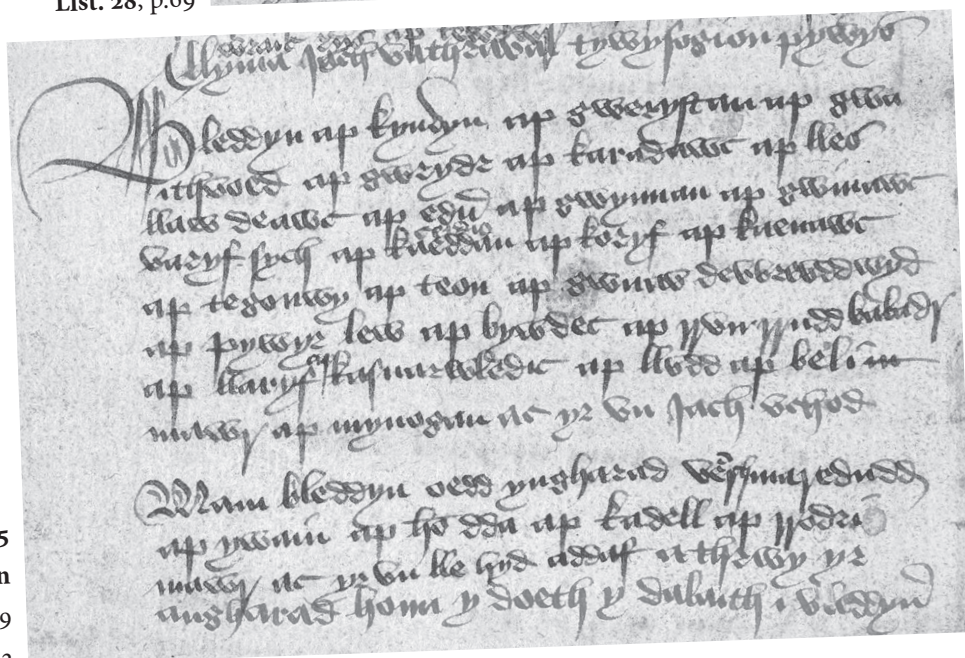 List. 28, p.69
llyma Jach vatheraval tywysogion pywys
Bleddyn ap kynvyn ap gwerystan ap gwa
ithvoed ap gwrydr ap karadawc ap lles
llaw deawc ap edn ap gwynnan ap gwinawc
varyf sych ap keiddan ap koryf ap kaenawc
ap tegonwy ap teon ap gwinw devvrewddwyd
ap pywyr lew ap bywdec ap rrvn rrudd baladr
ap llaryf ap kasnar wledic ap llvdd ap beli m
mawr ap mynogan ac yr vn Jach vchod
Mam bleddyn oedd yngharad verch maredudd
ap ywain ap ho dda ap kadell ap rrodri
mawr ac yr vn lle hyd addaf a thrwy yr
angharad honn y doeth y dalaith i vleddyn
5
n
9